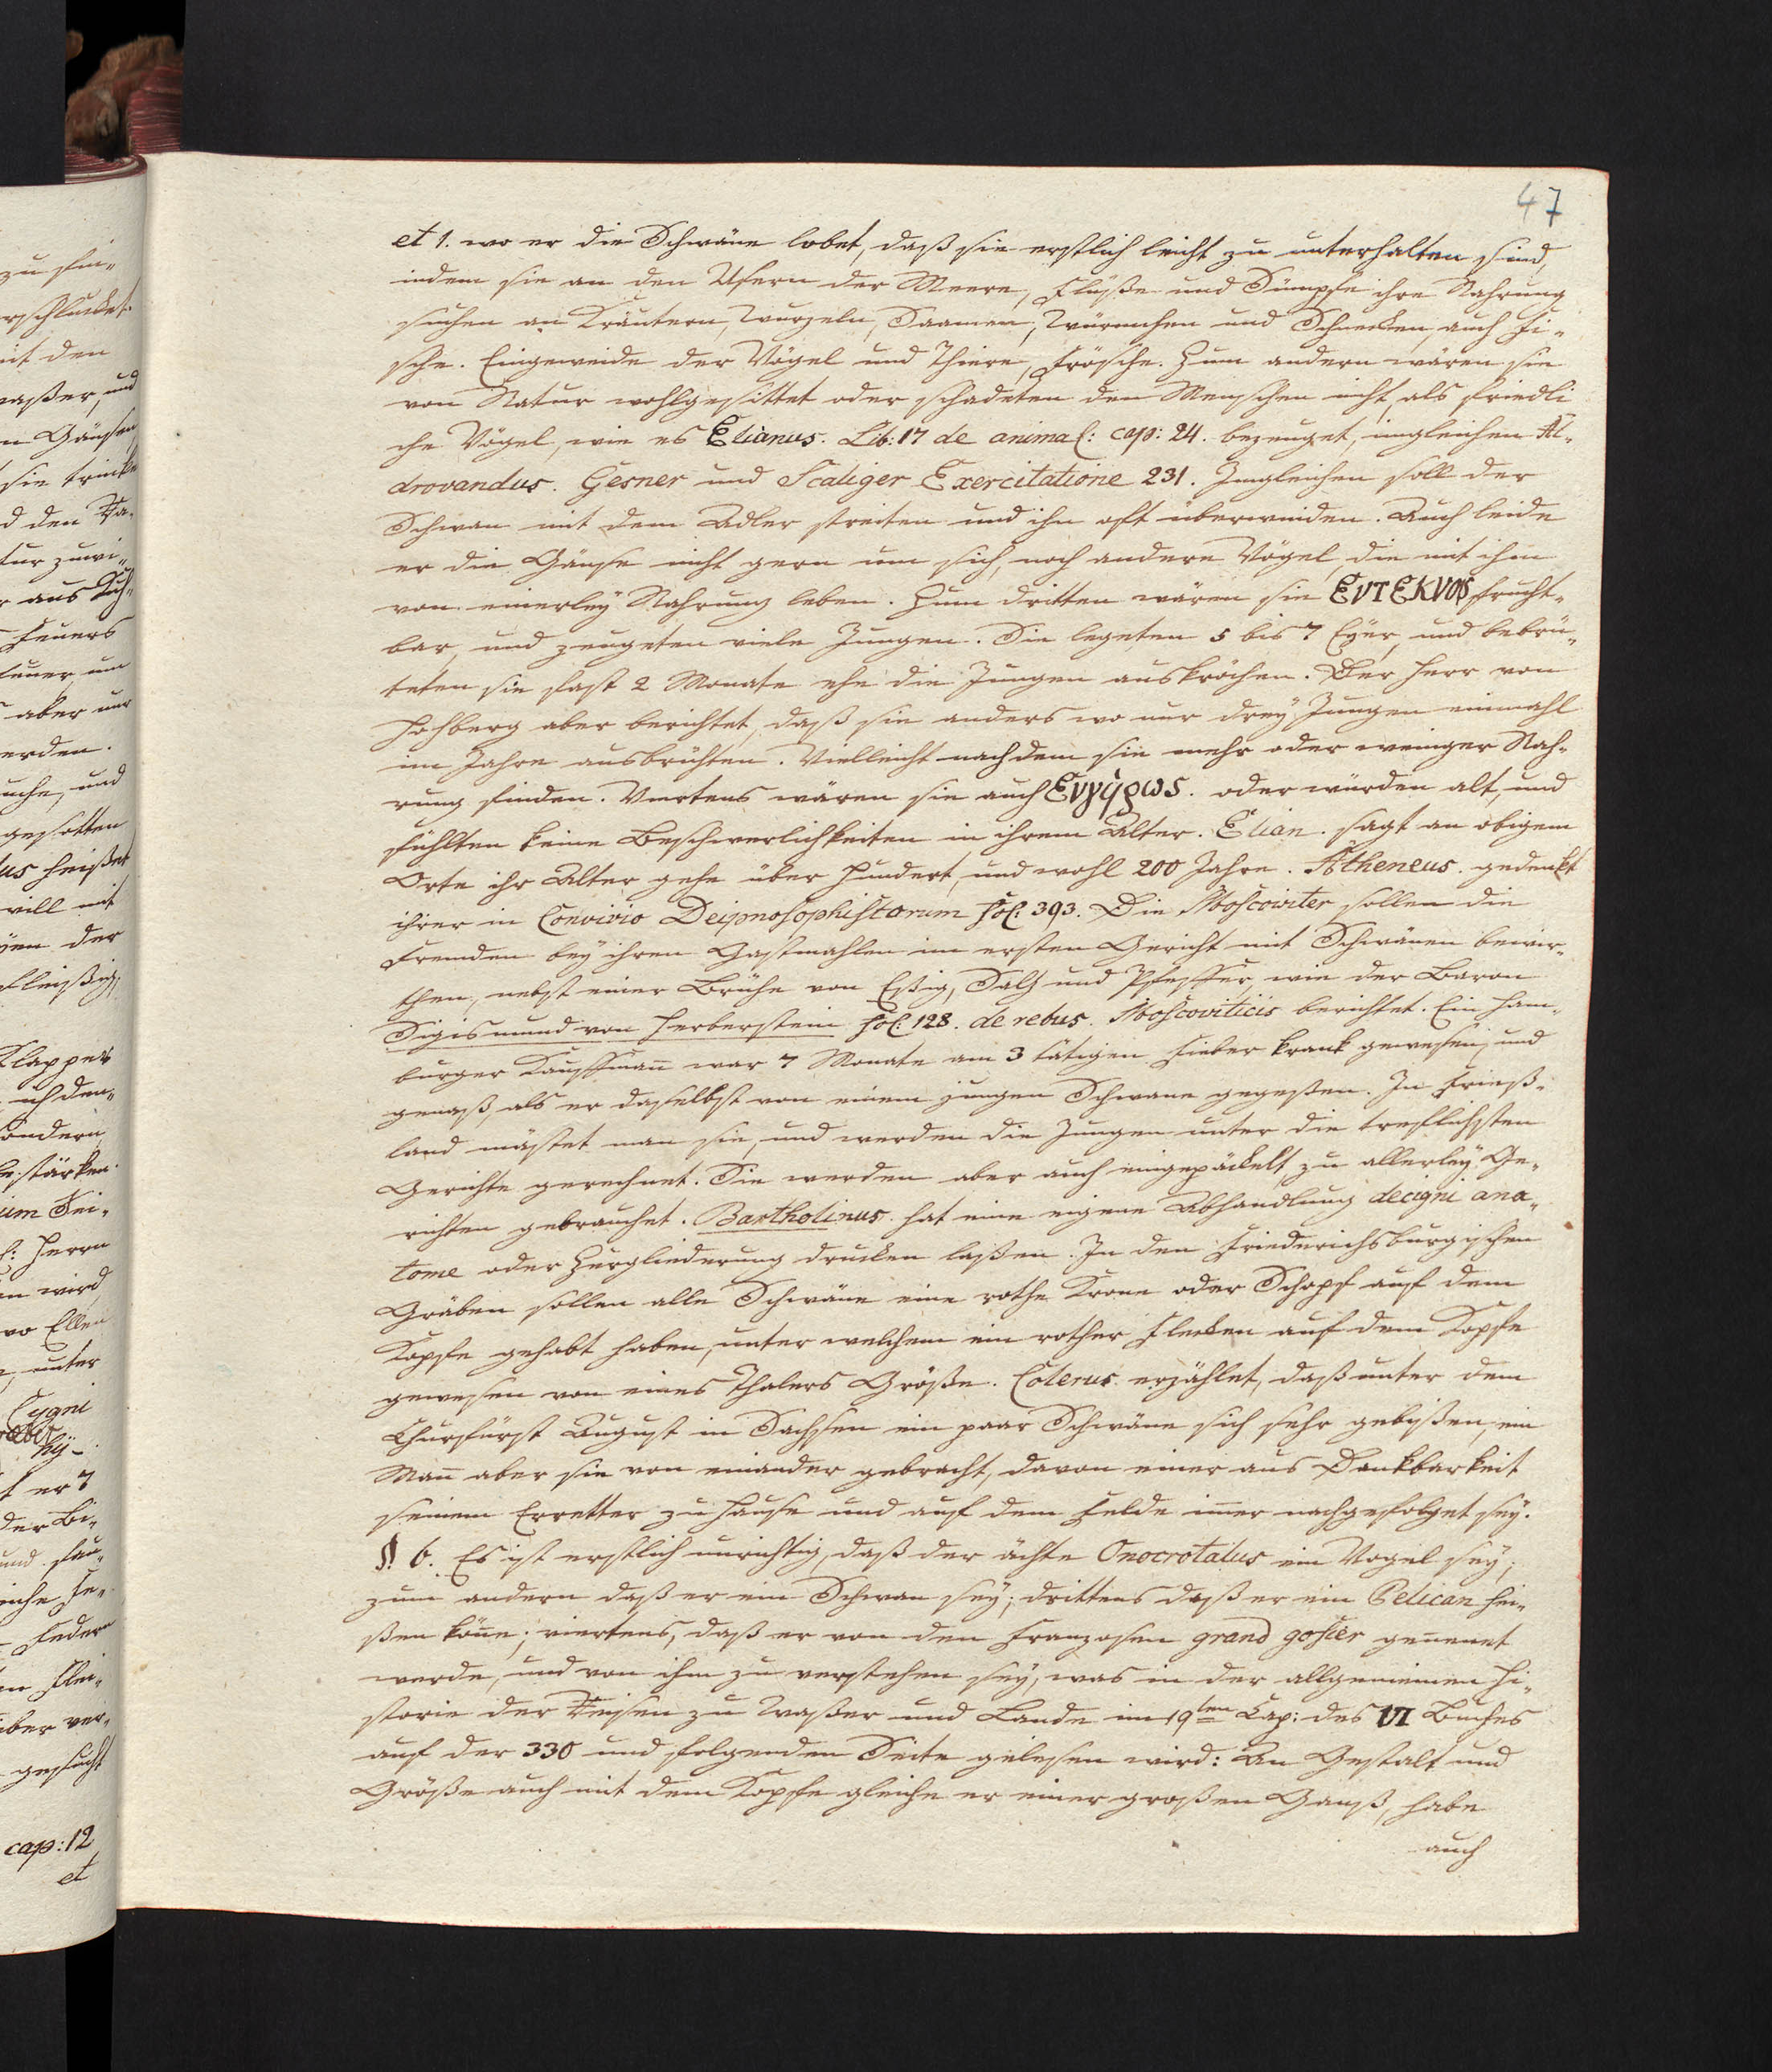 47
et 1. wo er die Schwäne lobet, daß sie erstlich leicht zu unterhalten sind,
indem sie an den Ufern der Meere, Flüße und Sümpfe ihre Nahrung
suchen an Kräutern, Wurzeln, Saamen, Würmchen und Schnecken, auch Fi-
sche. Eingeweide der Vögel und Thiere, Frösche. Zum andern wären sie
von Natur wohlgesittet oder schadeten den Menschen nicht, als friedli
che Vögel, wie es Elianus. Lib: 17 de animal: cap: 24. bezeuget, imgleichen Al-
drovandus. Gesner und Scaliger Exercitatione 231. Imgleichen soll der
Schwan mit dem Adler streiten und ihn oft überwinden. Auch leide
er die Gänse nicht gern um sich, noch andere Vögel, die mit ihm
von einerley Nahrung leben. Zum dritten wären sie ΕυΤΕΚνοs frucht-
bar, und zeugeten viele Jungen. Sie legeten 5 bis 7 Eyer, und bebrü-
teten sie fast 2 Monate ehe die Jungen auskröchen. Der Herr von
Hohberg aber berichtet, daß sie anders wo nur drey Jungen einmahl
im Jahre ausbrühten. Vielleicht nachdem sie mehr oder weniger Nah-
rung finden. Viertens wären sie auch Ευγήρως. oder würden alt, und
fühlten keine Beschwerlichkeiten in ihrem Alter. Elian. sagt an obigem
Orte ihr Alter gehe über hundert, und wohl 200 Jahre. Atheneus. gedenkt
ihrer in Convivio Deipnosophistorum fol: 393. Die Moscoviter sollen die
Fremden bey ihren Gastmahlen im ersten Gericht mit Schwänen bewir-
then, nebst einer Brühe von Eßig, Salz und Pfeffer, wie der Baron
Sigismund von Herberstein fol: 128. de rebus. Moscoviticis berichtet. Ein Ham-
burger Kauffmañ war 7 Monate am 3 tätigen Fieber krank gewesen, und
genaß, als er daselbst von einem jungen Schwane gegeßen. In Frieß-
land mästet man sie, und werden die Jungen unter die treflichsten
Gerichte gerechnet. Sie werden aber auch eingepöckelt, zu allerley Ge-
richten gebrauchet. Bartholinus. hat eine eigene Abhandlung decigni ana-
tome oder Zergliederung drucken laßen. In den Friederichsburgischen
Gräben sollen alle Schwäne eine rothe Krone oder Schopf auf dem
Kopfe gehabt haben, unter welchem ein rother Flecken auf dem Kopfe
gewesen von eines Thalers Größe. Colerus. erzählet, daß unter dem
Churfürst August in Sachsen ein paar Schwäne sich sehr gebißen, ein
Mañ aber sie von einander gebracht, davon einer aus Dankbarkeit
seinem Erretter zu Hause und auf dem Felde im̃er nachgefolget sey.
§. 6. Es ist erstlich unrichtig, daß der ächte Onocrotalus ein Vogel sey;
zum andern daß er ein Schwan sey; drittens daß er ein Pelican hei-
ßen köñe; viertens, daß er von den Franzosen grand gosier geñenet
werde, und von ihm zu verstehen sey, was in der allgemeinen Hi-
storie der Reisen zu Waßer und Lande im 19ten Cap: des VI Buches
auf der 330 und folgenden Seite gelesen wird: An Gestalt und
Größe auch mit dem Kopfe gleiche er einer großen Ganß, habe
auch